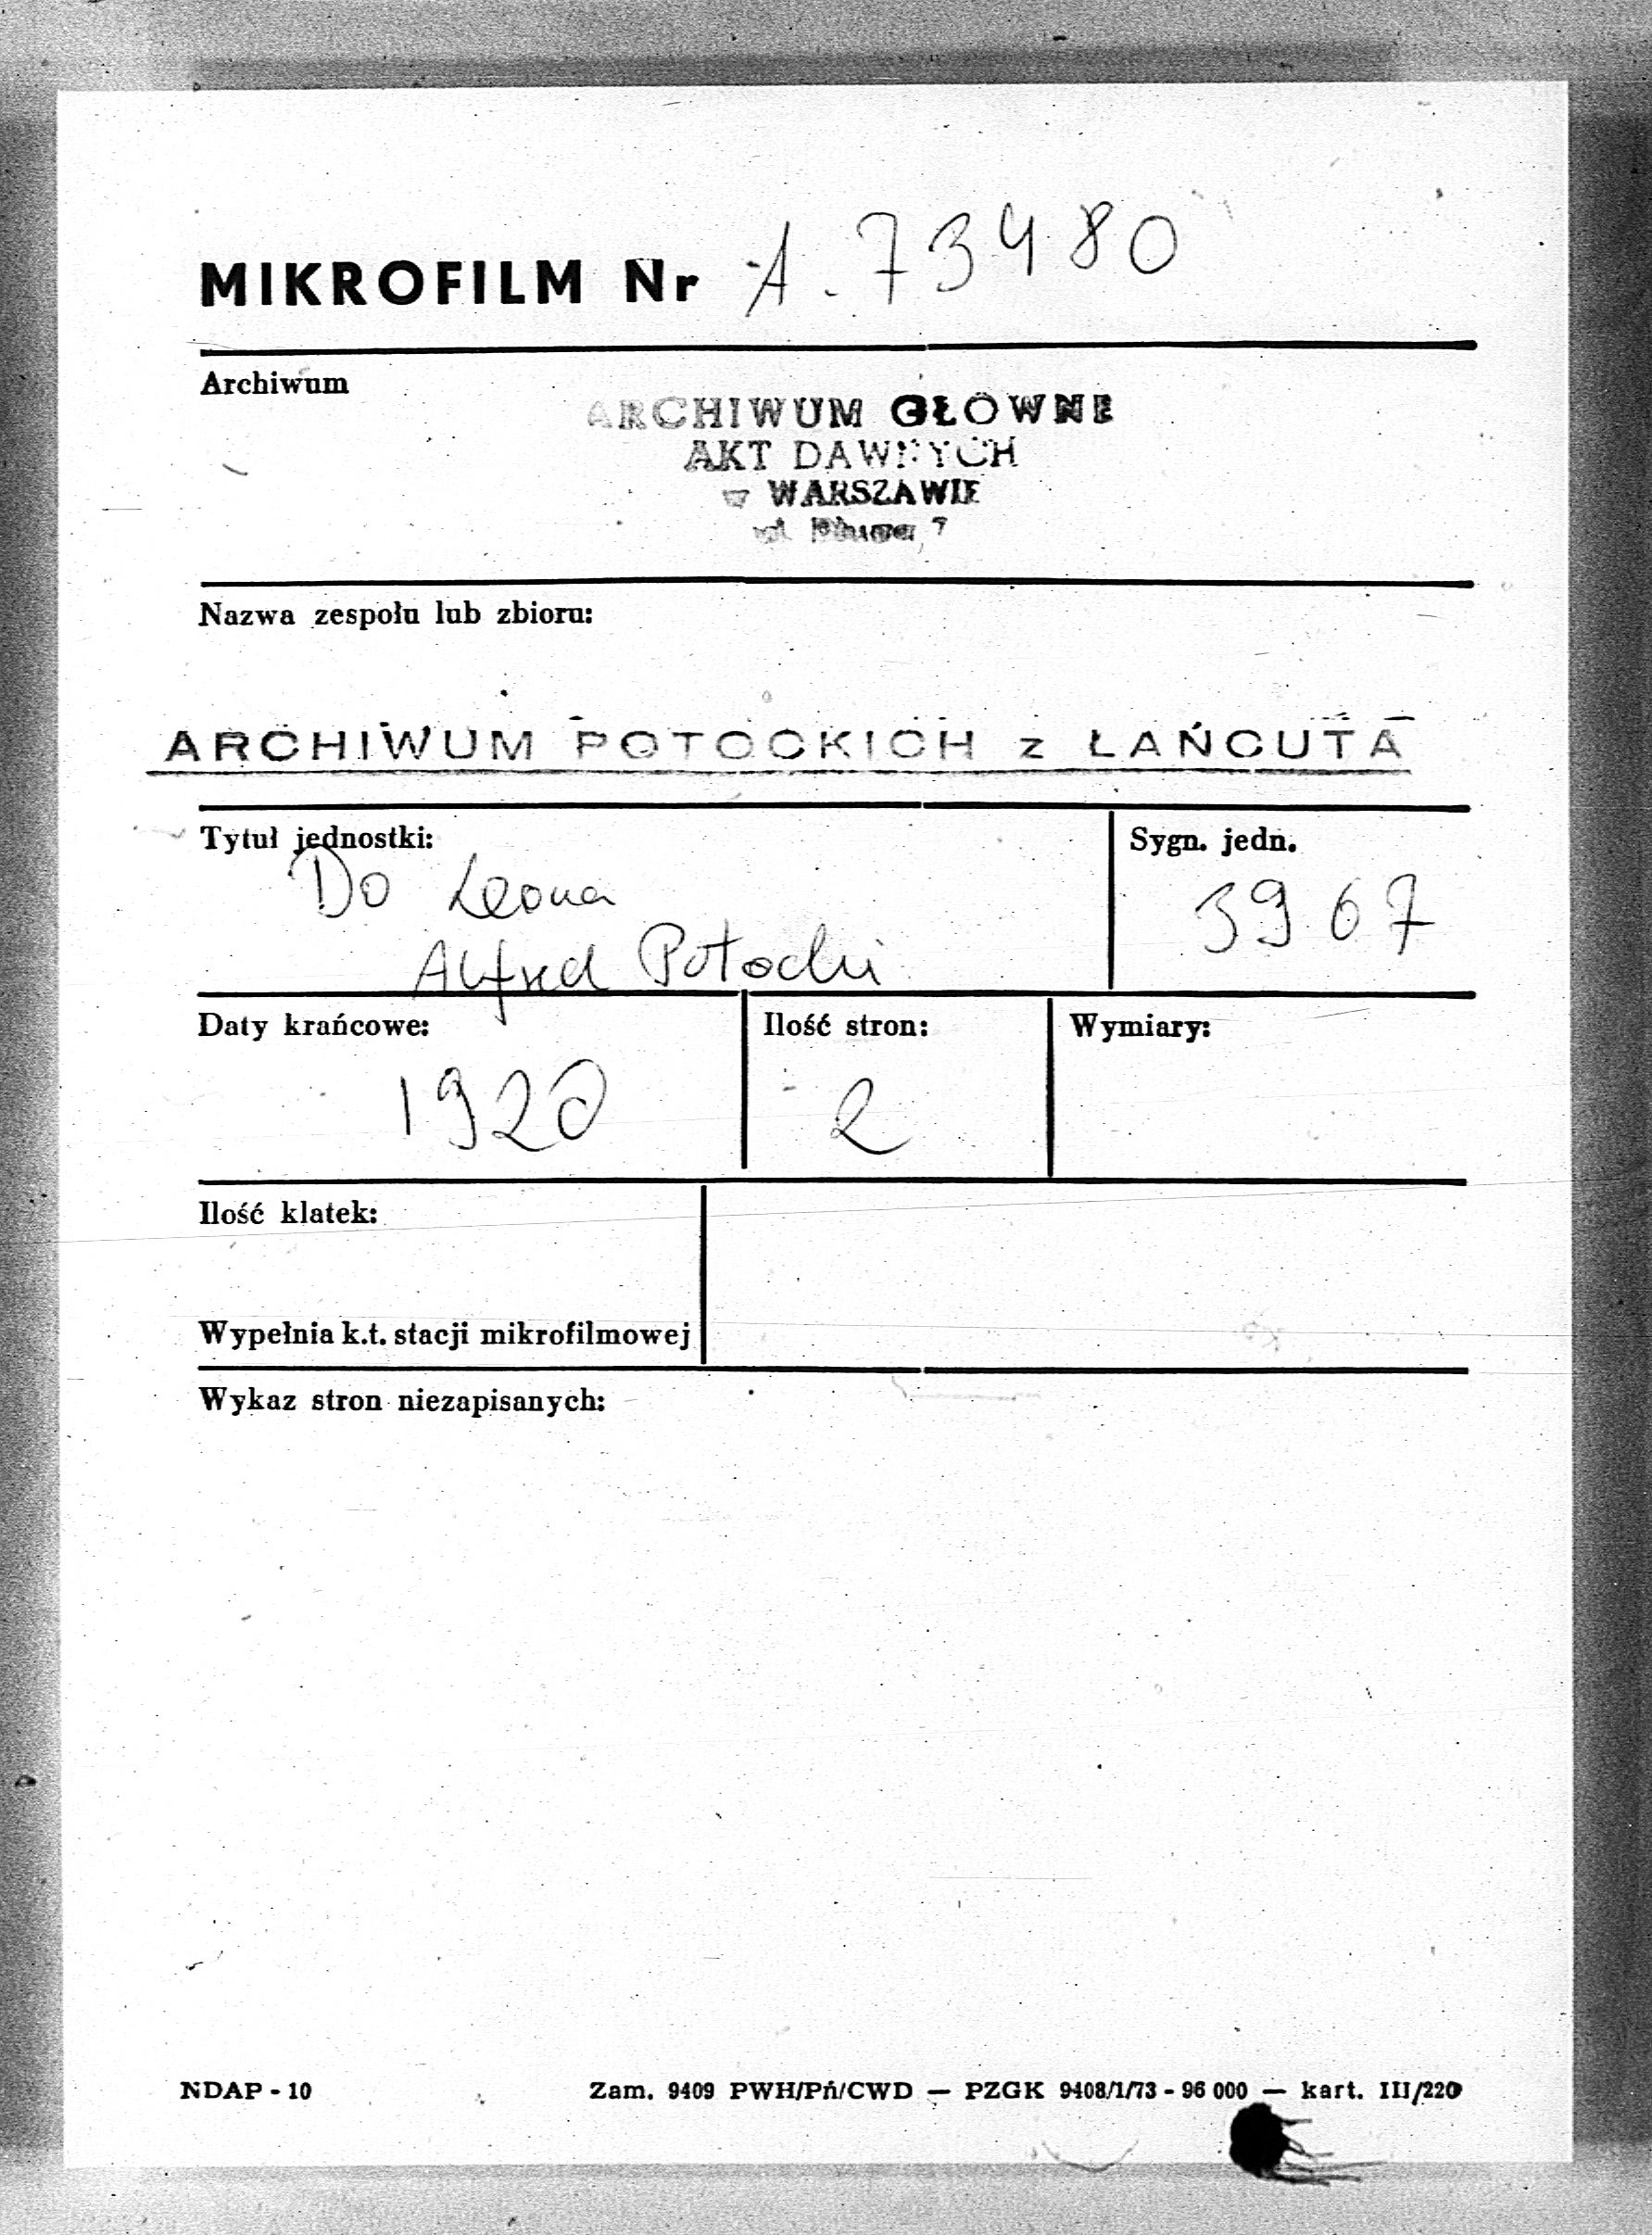 MIKROFILM Nr A. 73480
Archiwum
ARCHIWUM GŁÓWNE
AKT DAWNYCH
w WARSZAWIE
ul. Długa 7
Nazwa zespołu lub zbioru:
ARCHIWUM POTOCKICH z ŁAŃCUTA
Tytuł jednostki:
Sygn. jedn.
Do Leona
3967
Alfred Potocki
Daty krańcowe:
Ilość stron:
Wymiary:
1920
2
Ilość klatek:
Wypełnia k.t. stacji mikrofilmowej
Wykaz stron niezapisanych:
NDAP - 10
Zam. 9409 PWH/Pń/CWD — PZGK 9408/1/73 - 96 000 — kart. III/220